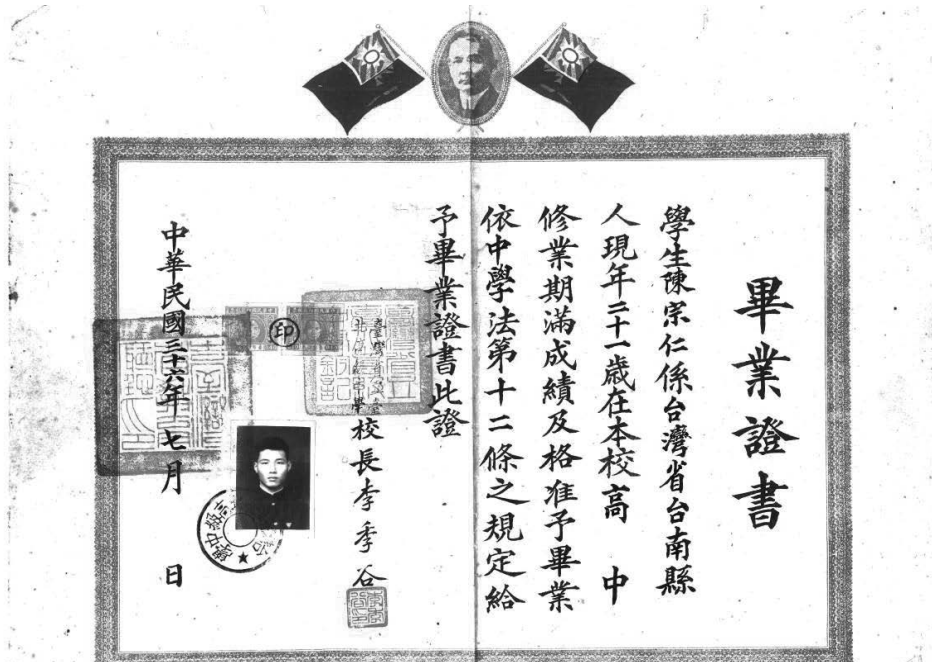 畢業證書
學生陳宗仁係台灣省台南縣
人現年二十一歲在本校高 中
修業期滿成績及格准予畢業
依中學法第十二條之規定給
予畢業證書此證
校長李季谷
印
中華民國三十六年 七月 日